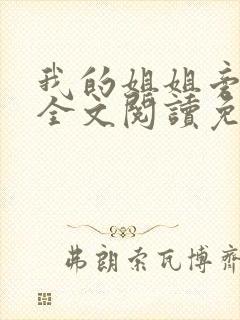 我的姐姐
全文閱讀免
弗朗索瓦博齊